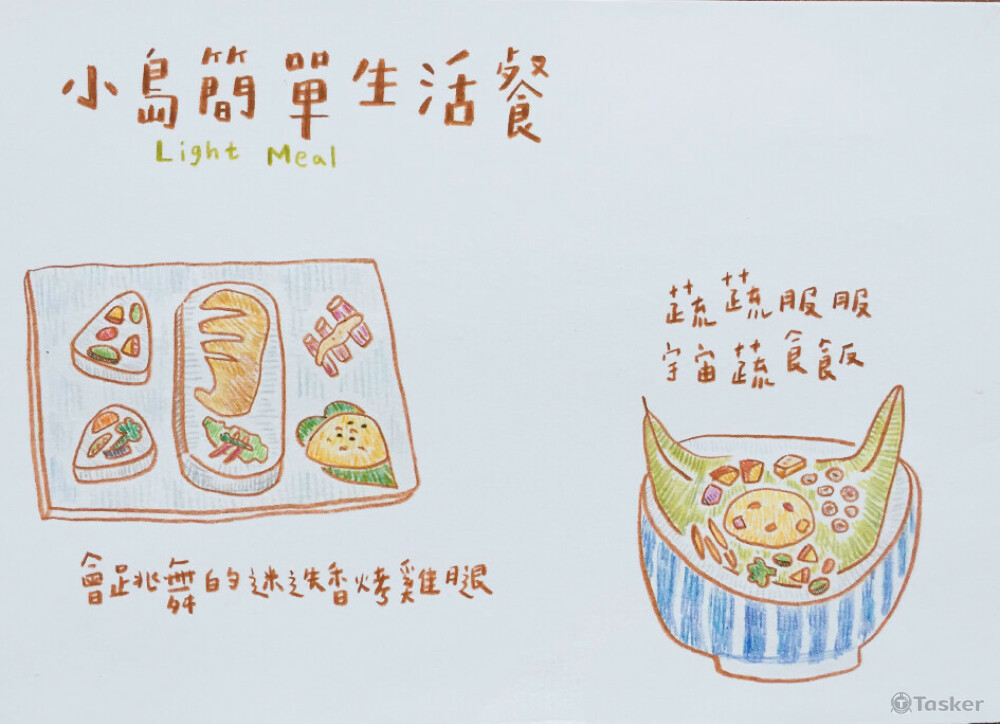 小島簡單生活餐
Light Meal
蔬蔬服服
宇宙蔬食飯
會跳舞的迷迭香烤雞腿
Tasker